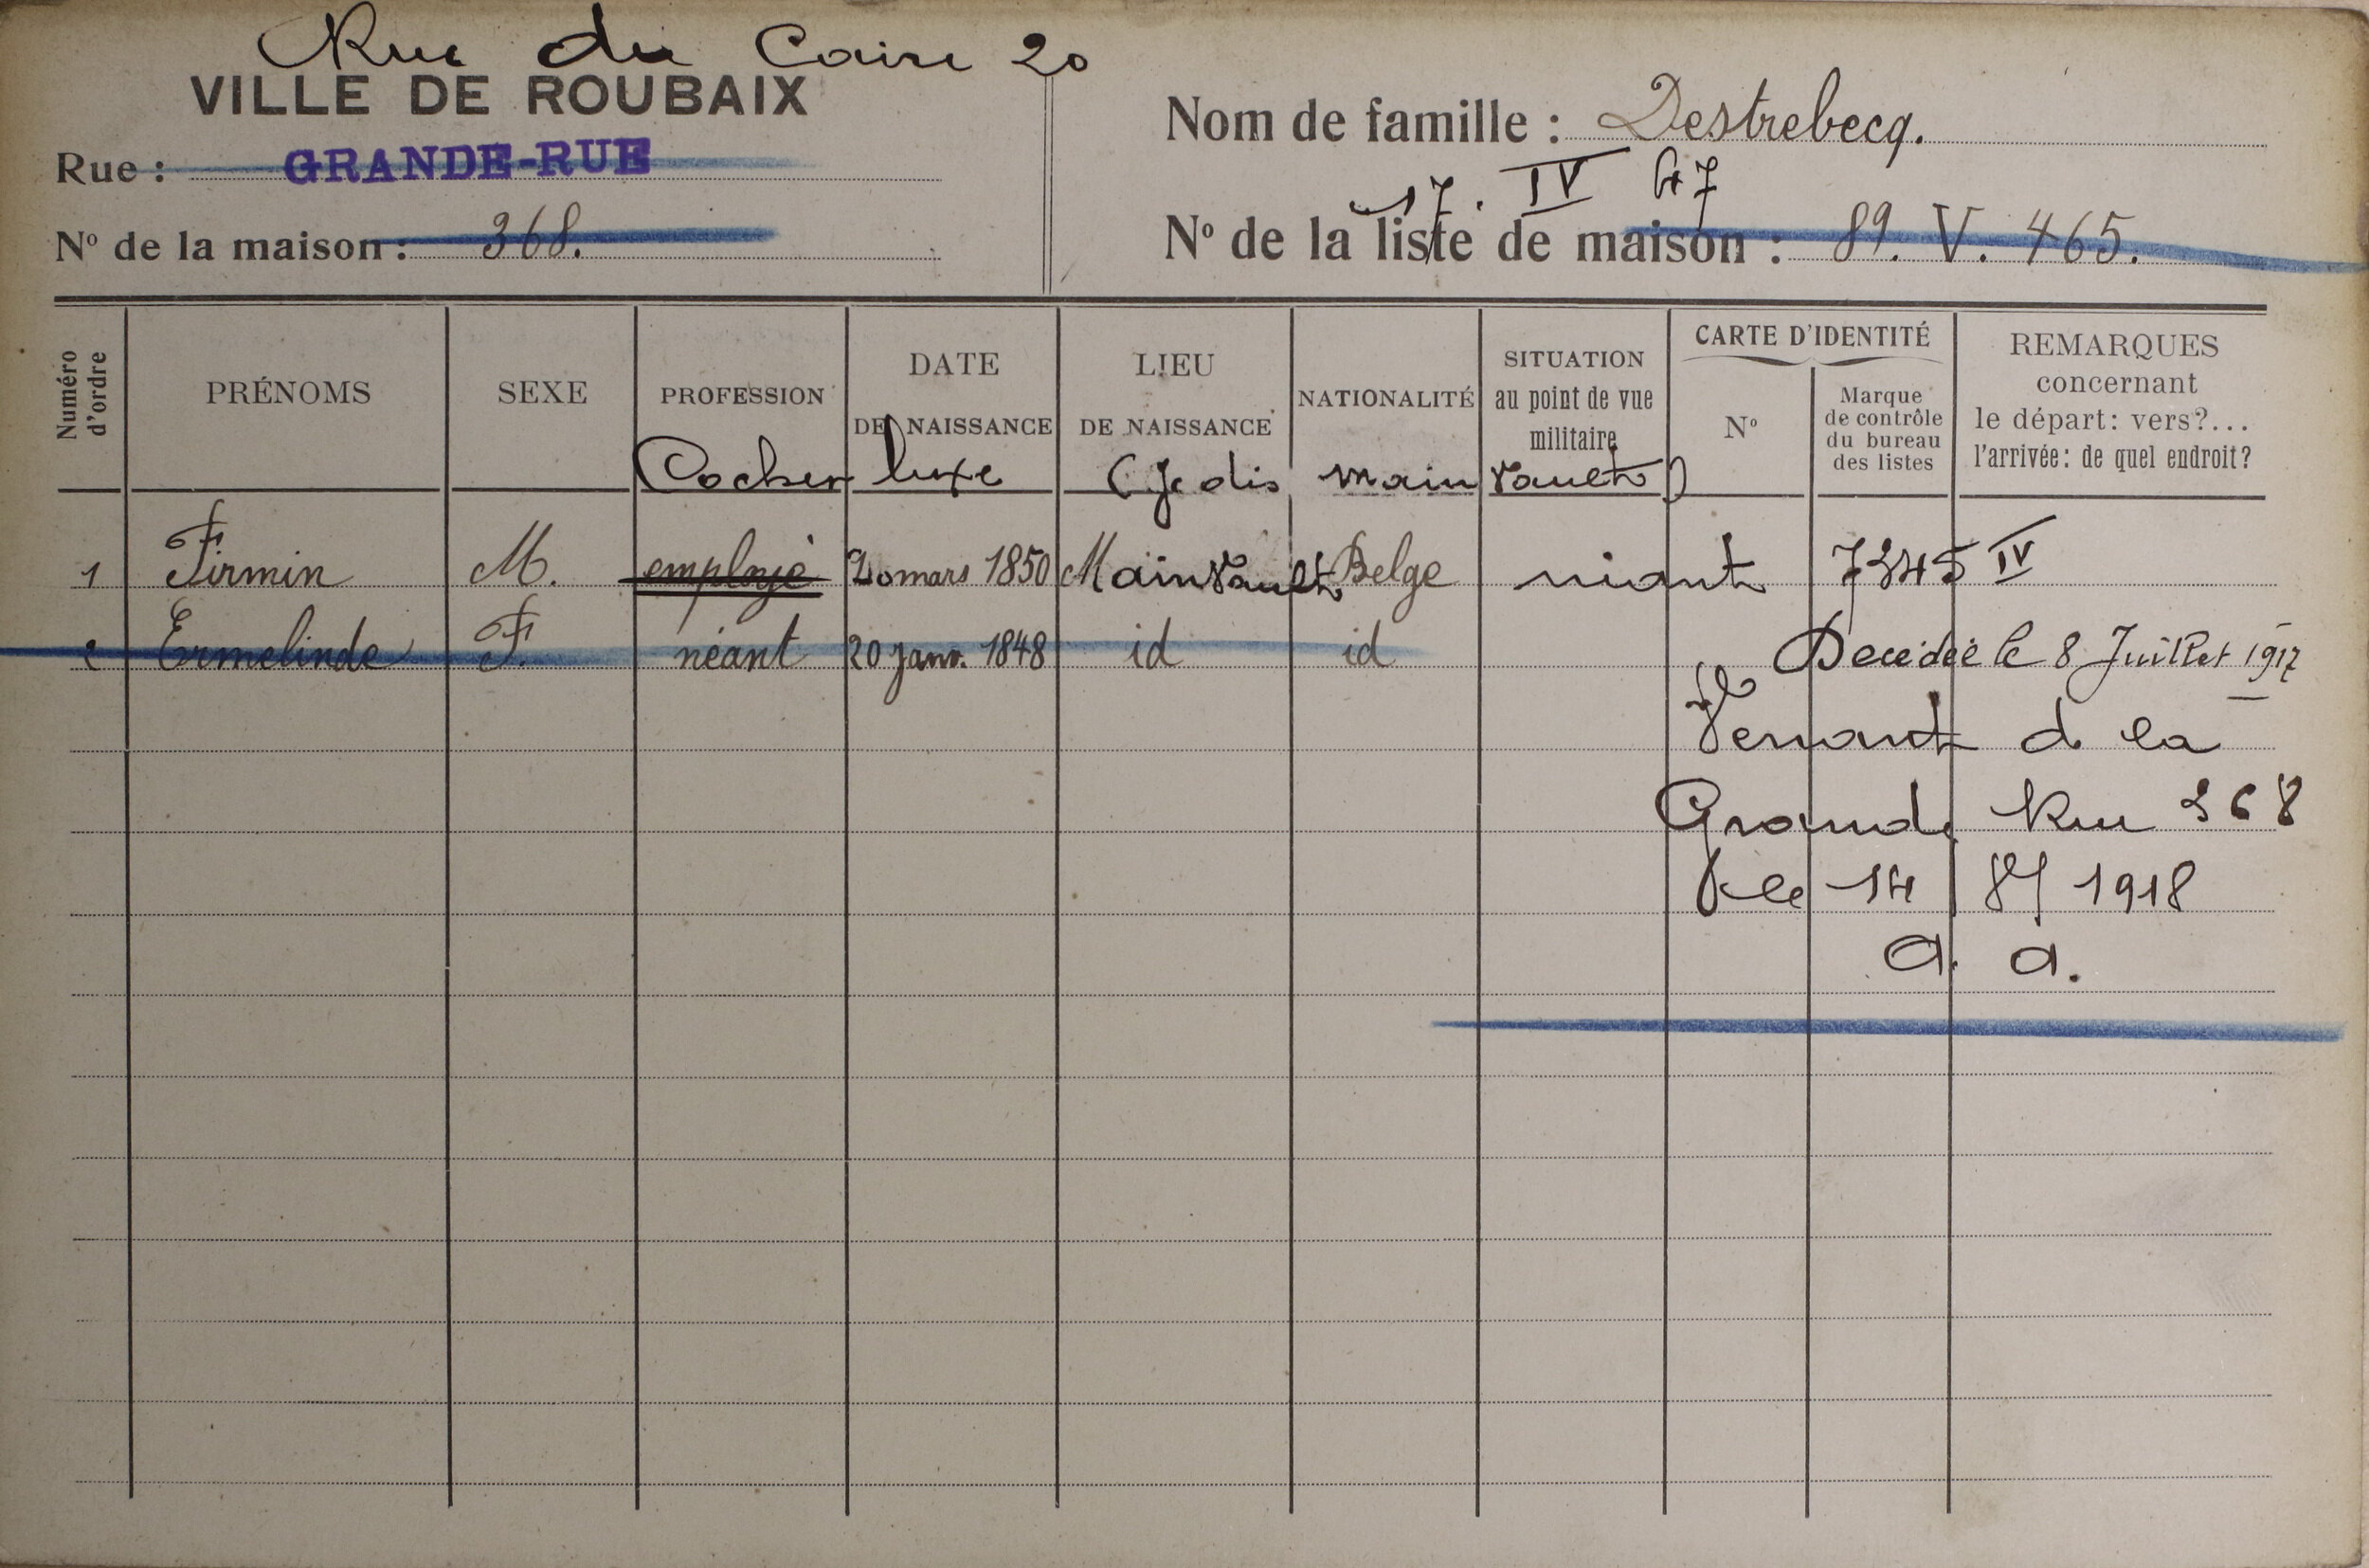 Rue du Caire 20
VILLE DE ROUBAIX
Rue : GRANDE-RUE
N° de la maison : 368.
Nom de famille : Destrebecq.
17. IV 47
N° de la liste de maison : 89. V. 465.
Numéro d'ordre
PRÉNOMS
SEXE
PROFESSION
DATE DE NAISSANCE
LIEU DE NAISSANCE
NATIONALITÉ
SITUATION au point de vue militaire
CARTE D'IDENTITÉ
N°
Marque de contrôle du bureau des listes
REMARQUES concernant le départ: vers?... l'arrivée: de quel endroit?
Cocher luxe (Je dis mainvault)
1 Firmin M. employé 20 mars 1850 Mainvault Belge niant 7345 IV
2 Ermelinde F. néant 20 janv. 1848 id id Décédée le 8 Juillet 1917
Venant d la
Grande Rue 368
le 14 1918
a. a.